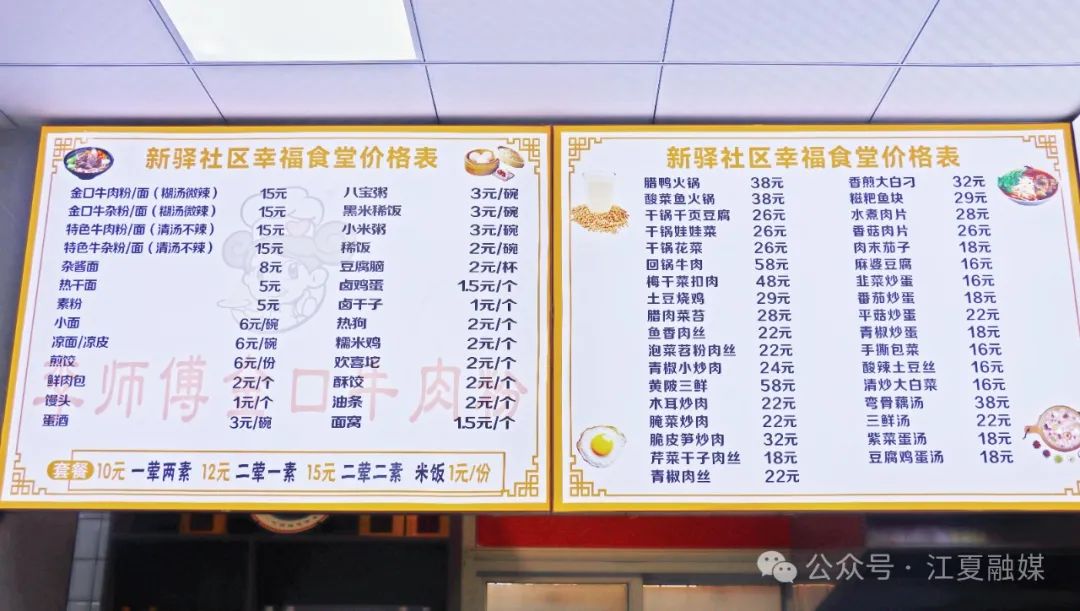 新驿社区幸福食堂价格表
金口牛肉粉/面（糊汤微辣） 15元
金口牛杂粉/面（糊汤微辣） 15元
特色牛肉粉/面（清汤不辣） 15元
特色牛杂粉/面（清汤不辣） 15元
杂酱面 8元
热干面 5元
素粉 5元
小面 6元/碗
凉面/凉皮 6元/碗
煎饺 6元/份
鲜肉包 2元/个
馒头 1元/个
蛋酒 3元/碗
八宝粥 3元/碗
黑米稀饭 3元/碗
小米粥 3元/碗
稀饭 2元/碗
豆腐脑 2元/杯
卤鸡蛋 1.5元/个
卤干子 1元/个
热狗 2元/个
糯米鸡 2元/个
欢喜坨 2元/个
酥饺 2元/个
油条 2元/个
面窝 1.5元/个
李师傅金口牛肉粉
套餐 10元 一荤两素 12元 二荤一素 15元 二荤二素 米饭1元/份
新驿社区幸福食堂价格表
腊鸭火锅 38元
酸菜鱼火锅 38元
干锅千页豆腐 26元
干锅娃娃菜 26元
干锅花菜 26元
回锅牛肉 58元
梅干菜扣肉 48元
土豆烧鸡 29元
腊肉菜苔 28元
鱼香肉丝 22元
泡菜苕粉肉丝 22元
青椒小炒肉 24元
黄陂三鲜 58元
木耳炒肉 22元
腌菜炒肉 22元
脆皮笋炒肉 32元
芹菜干子肉丝 18元
青椒肉丝 22元
香煎大白刁 32元
糍粑鱼块 29元
水煮肉片 28元
香菇肉片 26元
肉末茄子 18元
麻婆豆腐 16元
韭菜炒蛋 16元
番茄炒蛋 18元
平菇炒蛋 22元
青椒炒蛋 18元
手撕包菜 16元
酸辣土豆丝 16元
清炒大白菜 16元
弯骨藕汤 38元
三鲜汤 22元
紫菜蛋汤 18元
豆腐鸡蛋汤 18元
公众号·江夏融媒